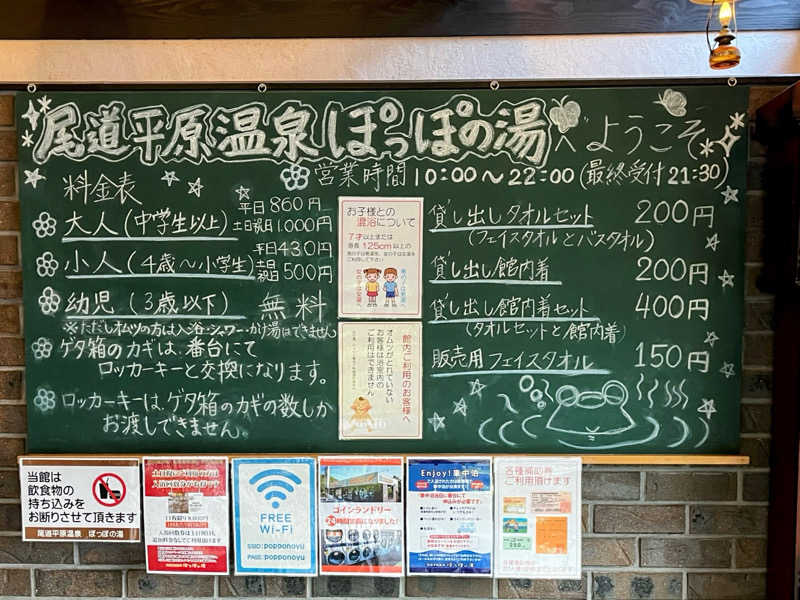 尾道平原温泉ぽっぽの湯へようこそ
営業時間 10:00～22:00 (最終受付 21:30)
料金表
大人 (中学生以上) 平日 860円
土日祝月 1,000円
小人 (4歳～小学生) 平日 430円
土日祝日 500円
幼児 (3歳以下) 無料
※ただしオムツの方は入浴・シャワー・かけ湯はできません
ゲタ箱のカギは番台にて
ロッカーキーと交換になります。
ロッカーキーは、ゲタ箱のカギの数しか
お渡しできません。
お子様との
混浴について
7才以上または
身長125cm以上の
男の子は男湯へ
女の子は女湯へ
館内ご利用のお客様へ
オムツがとれていない
お客様は浴室内の
ご利用はできません
貸し出しタオルセット 200円
(フェイスタオルとバスタオル)
貸し出し館内着 200円
貸し出し館内着セット 400円
(タオルセットと館内着)
販売用フェイスタオル 150円
当館は
飲食物の
持ち込みを
お断りさせて頂きます
尾道平原温泉 ぽっぽの湯
FREE
Wi-Fi
SSID:popponoyu
PASS:popponoyu
コインランドリー
24時間営業になりました!
Enjoy!集中泊
各種補助券が
ご利用頂けます